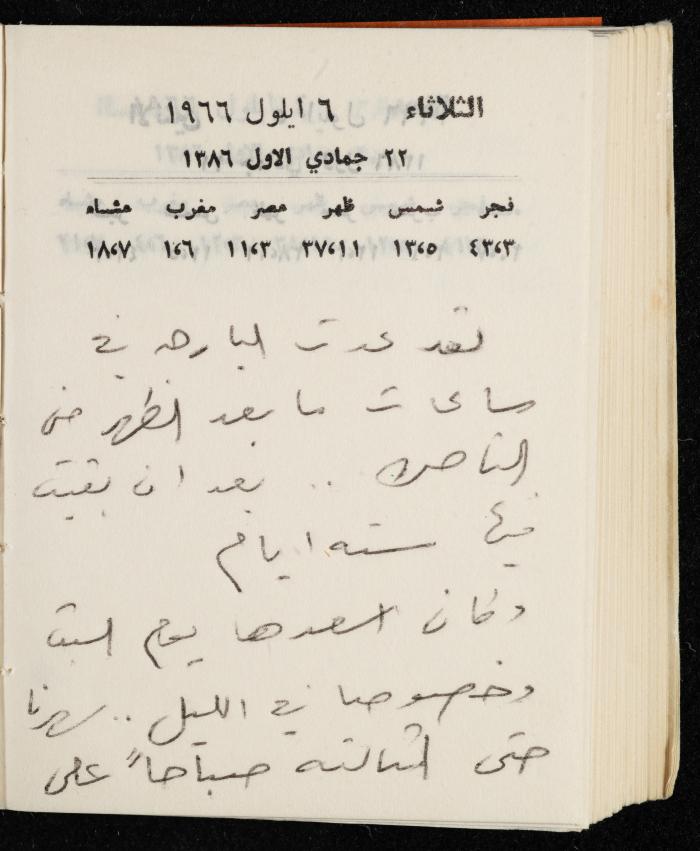 الثلاثاء ٦ ايلول ١٩٦٦
٢٢ جمادي الاول ١٣٨٦
فجر شمس ظهر عصر مغرب عشاء
٤٣،٣ ١٣،٥ ٣٧،١١ ١١،٣ ١،٦ ١٨،٧
لقد عدت البارحه في
ساعات ما بعد الظهر من
الناصره .. بعد ان بقيت
فيها سته ايام
وكان اسعدها يوم السبت
وخصوصا في الليل .. سهرنا
حتى الثالثه صباحاً على